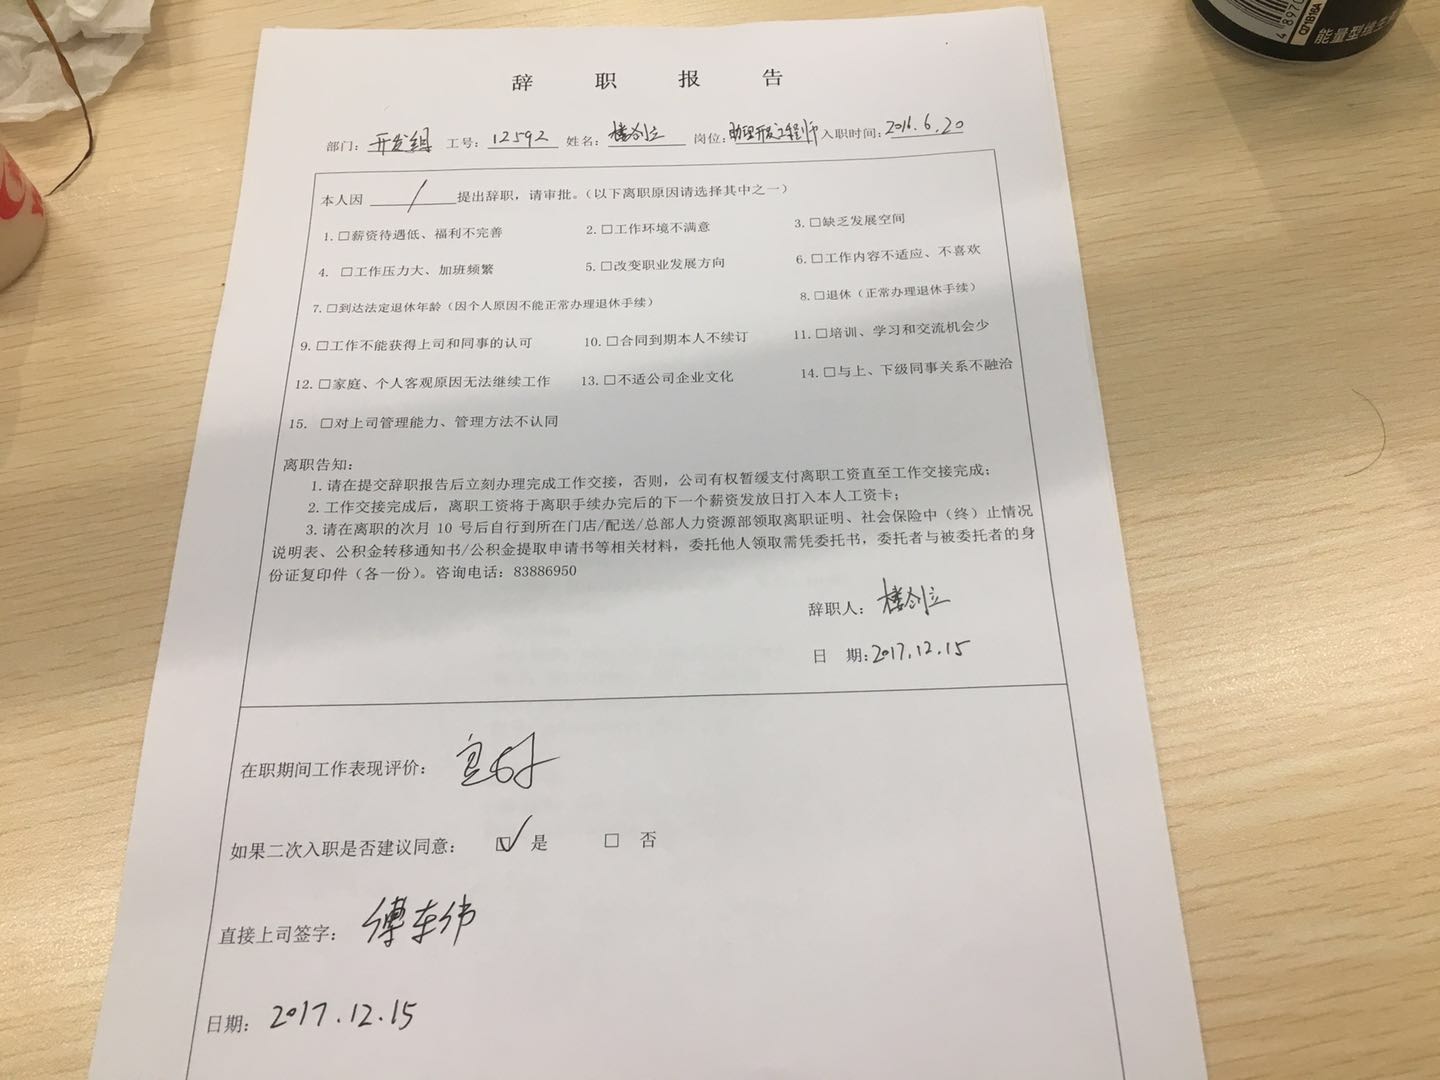 辞职报告
部门：开发组 工号：12592 姓名：楼剑立 岗位：助理开发工程师 入职时间：2016.6.20
本人因 / 提出辞职，请审批。（以下离职原因请选择其中之一）
1.□薪资待遇低、福利不完善 2.□工作环境不满意 3.□缺乏发展空间
4. □工作压力大、加班频繁 5.□改变职业发展方向 6.□工作内容不适应、不喜欢
7.□到达法定退休年龄（因个人原因不能正常办理退休手续） 8.□退休（正常办理退休手续）
9.□工作不能获得上司和同事的认可 10.□合同到期本人不续订 11.□培训、学习和交流机会少
12.□家庭、个人客观原因无法继续工作 13.□不适公司企业文化 14.□与上、下级同事关系不融洽
15. □对上司管理能力、管理方法不认同
离职告知：
1.请在提交辞职报告后立刻办理完成工作交接，否则，公司有权暂缓支付离职工资直至工作交接完成；
2.工作交接完成后，离职工资将于离职手续办完后的下一个薪资发放日打入本人工资卡；
3.请在离职的次月 10 号后自行到所在门店/配送/总部人力资源部领取离职证明、社会保险中（终）止情况
说明表、公积金转移通知书/公积金提取申请书等相关材料，委托他人领取需凭委托书，委托者与被委托者的身
份证复印件（各一份）。咨询电话：83886950
辞职人：楼剑立
日 期：2017.12.15
在职期间工作表现评价：
如果二次入职是否建议同意： ☑ 是 □ 否
直接上司签字：
日期：2017.12.15
48970
071B18A
能量型维生